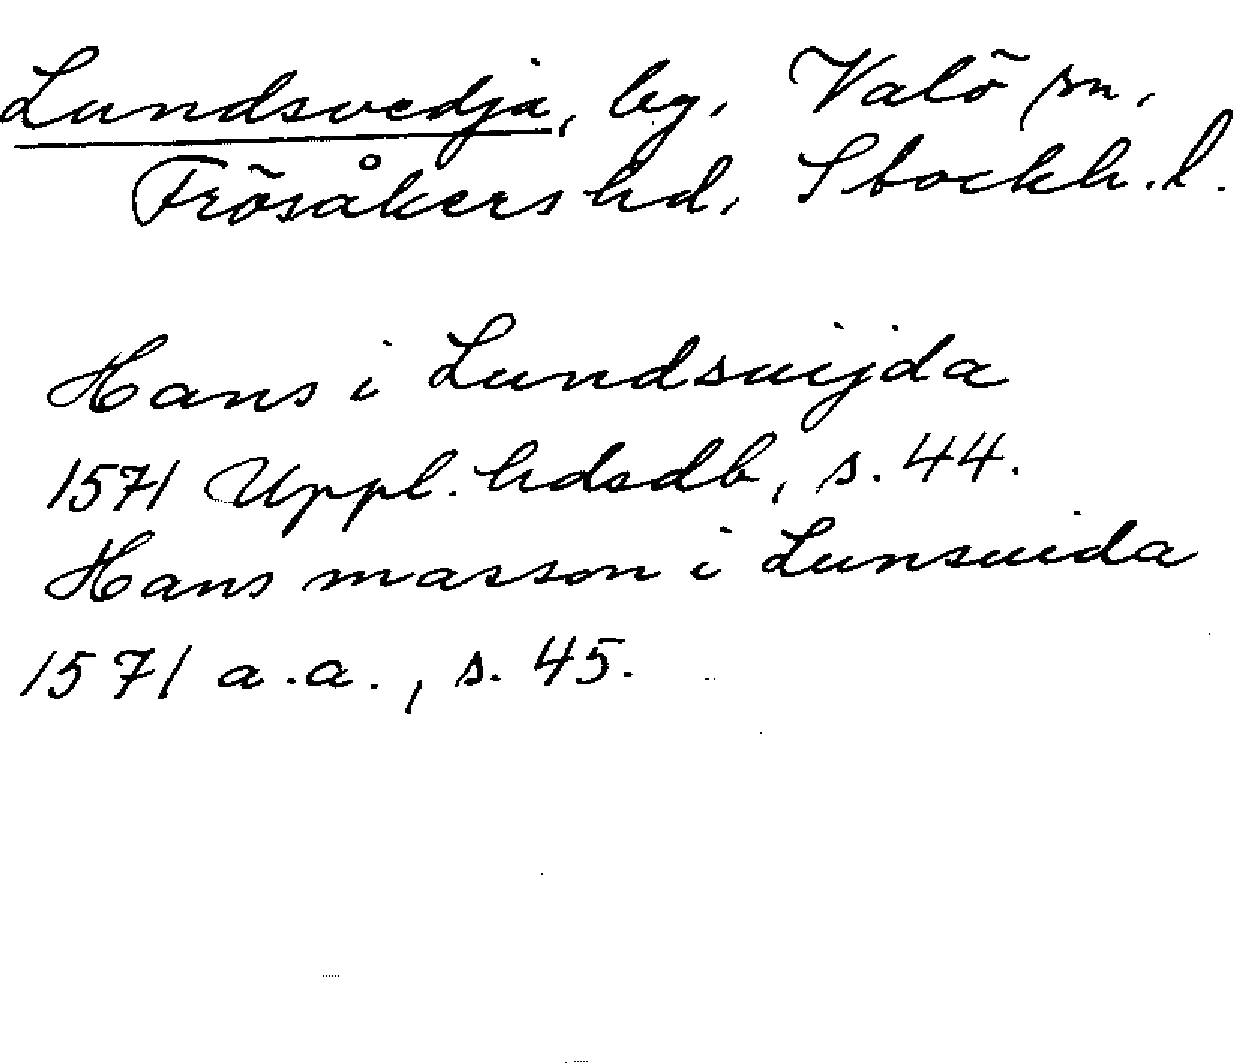 Lundsvedja, by, Valö sn,
Frösåkers hd, Stockh. l.
Hans i Lundsuijda
1571 Uppl. hdsdb, s. 44.
Hans masson i Lunsuida
1571 a.a., s. 45.